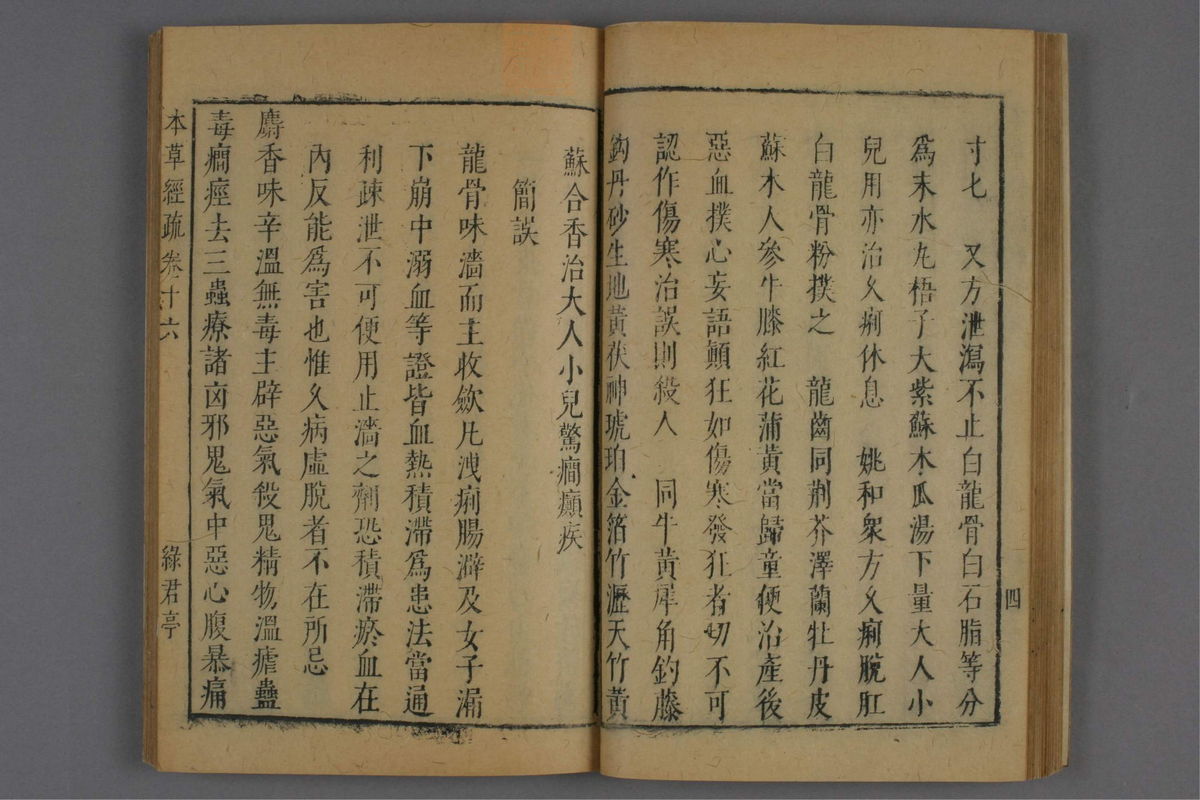 寸匕　又方泄瀉不止白龍骨白石脂等分
爲末水丸梧子大紫蘇木瓜湯下量大人小
兒用亦治久痢休息　姚和衆方久痢脫肛
白龍骨粉撲之　龍齒同荆芥澤蘭牡丹皮
蘇木人參牛膝紅花蒲黃當歸童便治產後
惡血撲心妄語顛狂如傷寒發狂者切不可
認作傷寒治誤則殺人　同牛黃犀角鈎藤
鈎丹砂生地黃茯神琥珀金箔竹瀝天竹黃
四
蘇合香治大人小兒驚癎癲疾
簡誤
龍骨味濇而主收歛凡洩痢腸澼及女子漏
下崩中溺血等證皆血熱積滯爲患法當通
利疎泄不可便用止濇之劑恐積滯瘀血在
內反能爲害也惟久病虛脫者不在所忌
麝香味辛溫無毒主辟惡氣殺鬼精物溫瘧蠱
毒癎痙去三蟲療諸凶邪鬼氣中惡心腹暴痛
本草經疏 卷十六
綠君亭